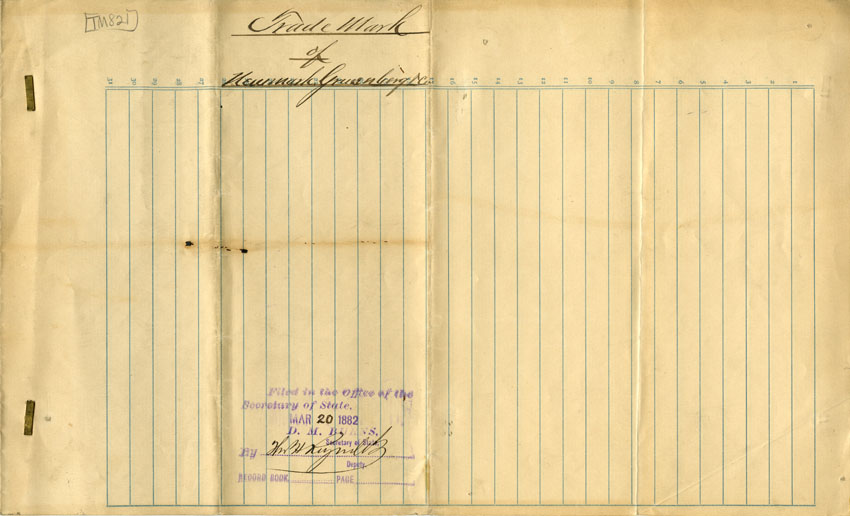 TM821
Trade Mark
of
Neumark Gruenberg & Co
31 30 29 28 27 16 15 14 13 12 11 10 9 8 7 6 5 4 3 2 1
Filed in the Office of the
Secretary of State,
MAR 20 1882
D. M. BURNS,
Secretary of State
By Wm H Reynolds
Deputy.
RECORD BOOK PAGE